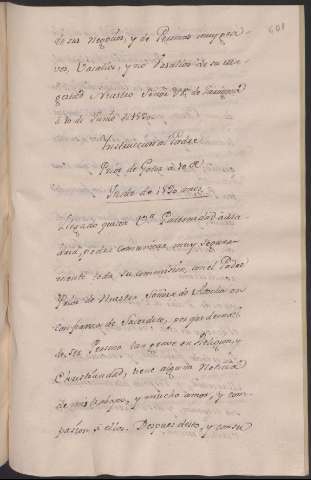 601
de sus Negocios, y de Personas muy gra-
ves, Vasallos, y no Vasallos de su Ma-
gestad Nuestro Señor
á 10 de Junio de
Instruccion al Padre
Prior de Gotor á 10 de
Junio de
Llegado que sea Paternidad á
dara, podra comunicar muy segura-
mente toda su commission, con el Padre
Prior de Nuestra Señora de Atocha en
confianza de Sacerdote, por que demas
de ser Persona tan grave en Religion, y
Christiandad, tiene alguna Noticia
de mis trabajos, y mucho amor, y com-
pasion á ellos. Despues desto, y con su